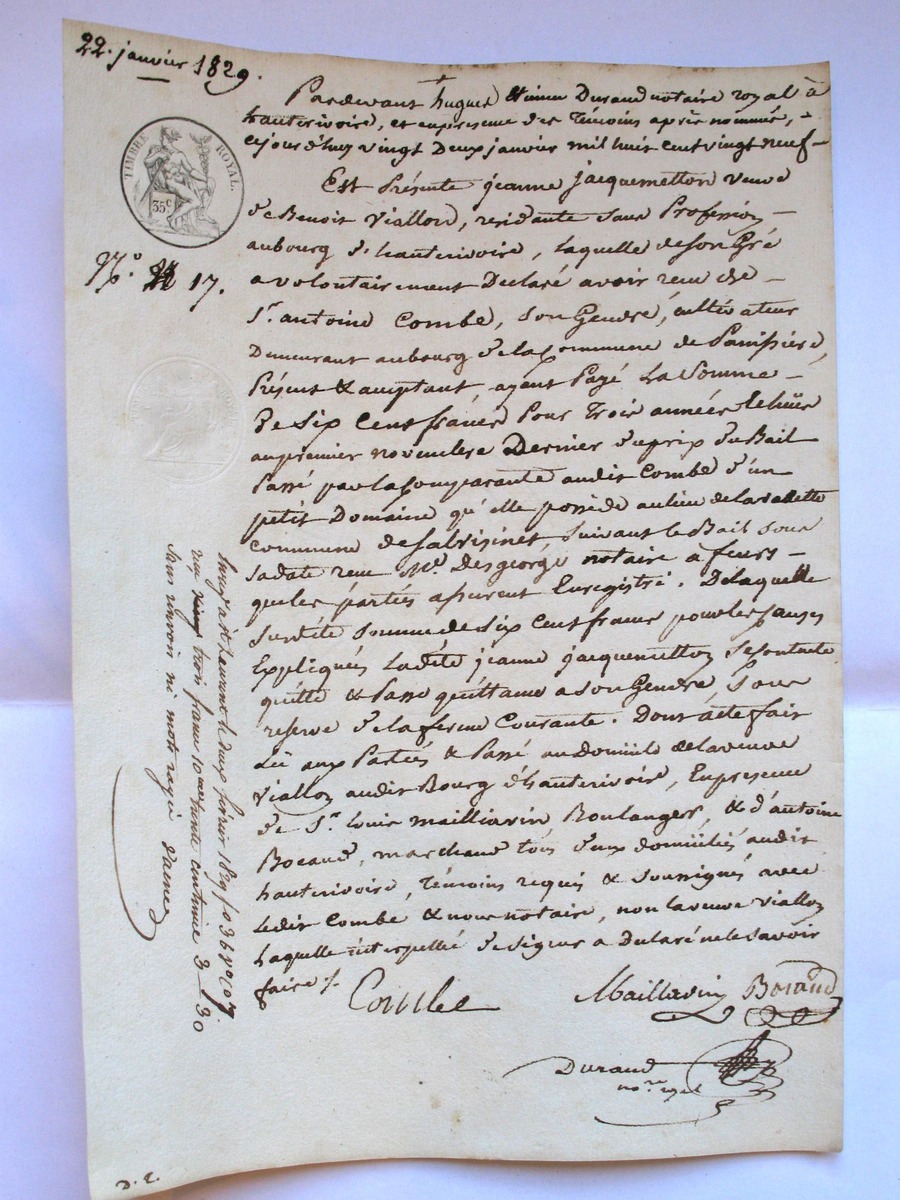 22. janvier 1829.
Pardevant hugues Etienne Durand notaire royal à
hauterivoire, et enpresence des Témoins après nommés,
cejourd'huy vingt Deux janvier mil huit cent vingt neuf
TIMBRE ROYAL.
35c
Est Présente jeanne jacquemetton veuve
de Benoit Viallon, residante sans Profession
aubourg d'hauterivoire, laquelle desongré
avolontairement Declaré avoir reçu de
No. 17.
Sr. antoine Combe, son Gendre, cultivateur
Demeurant aubourg de la Commune de
Présent & acceptant, ayant Payé La Somme
de Six Cent francs Pour Trois années
aupremier novembre Dernier duprix du Bail
Passé par la Comparante audit Combe d'un
petit Domaine qu'elle possède aulieu de
commune de Salvisinet, Suivant le Bail sous
sadate reçu Me. Desgeorge notaire à feurs
que les parties assurent Enregistré. Delaquelle
Susdite Somme de Six Cent francs pour les Causes
Expliquées Ladite jeanne jacquemetton Se contente
quitte & Passe quittance a son Gendre, Sous
reserve de la ferme Courante. Dont acte fait
Lû aux Parties & Passé au domicile de la veuve
Viallon audit Bourg d'hauterivoire, En presence
de Sr. Louis Mailliavin Boulanger, & d'antoine
Boraud, marchand tous deux domiciliés audit
hauterivoire, Témoins requis & Soussignés avec
Ledit Combe & nous notaire, non la veuve Viallon
Laquelle interpellée de signer a Declaré ne le Savoir
faire ./.
Combe Maillavin Boraud
Durand
nore. royal
Enregistré à St Laurent le deux février 1829 fo 36 vo
reçu trois francs 10me trente centimes 3–30
Sans renvoi ni mot rayé
D. C.